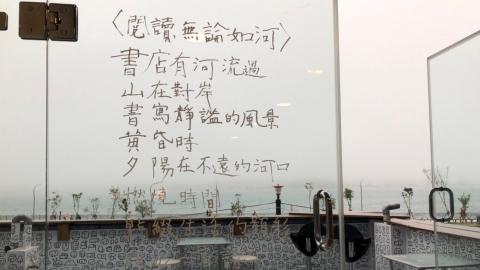 〈閱讀，無論如河〉
書店有河流過
山在對岸
書寫靜謐的風景
黃昏時
夕陽在不遠的河口
燃燒時間
生活的